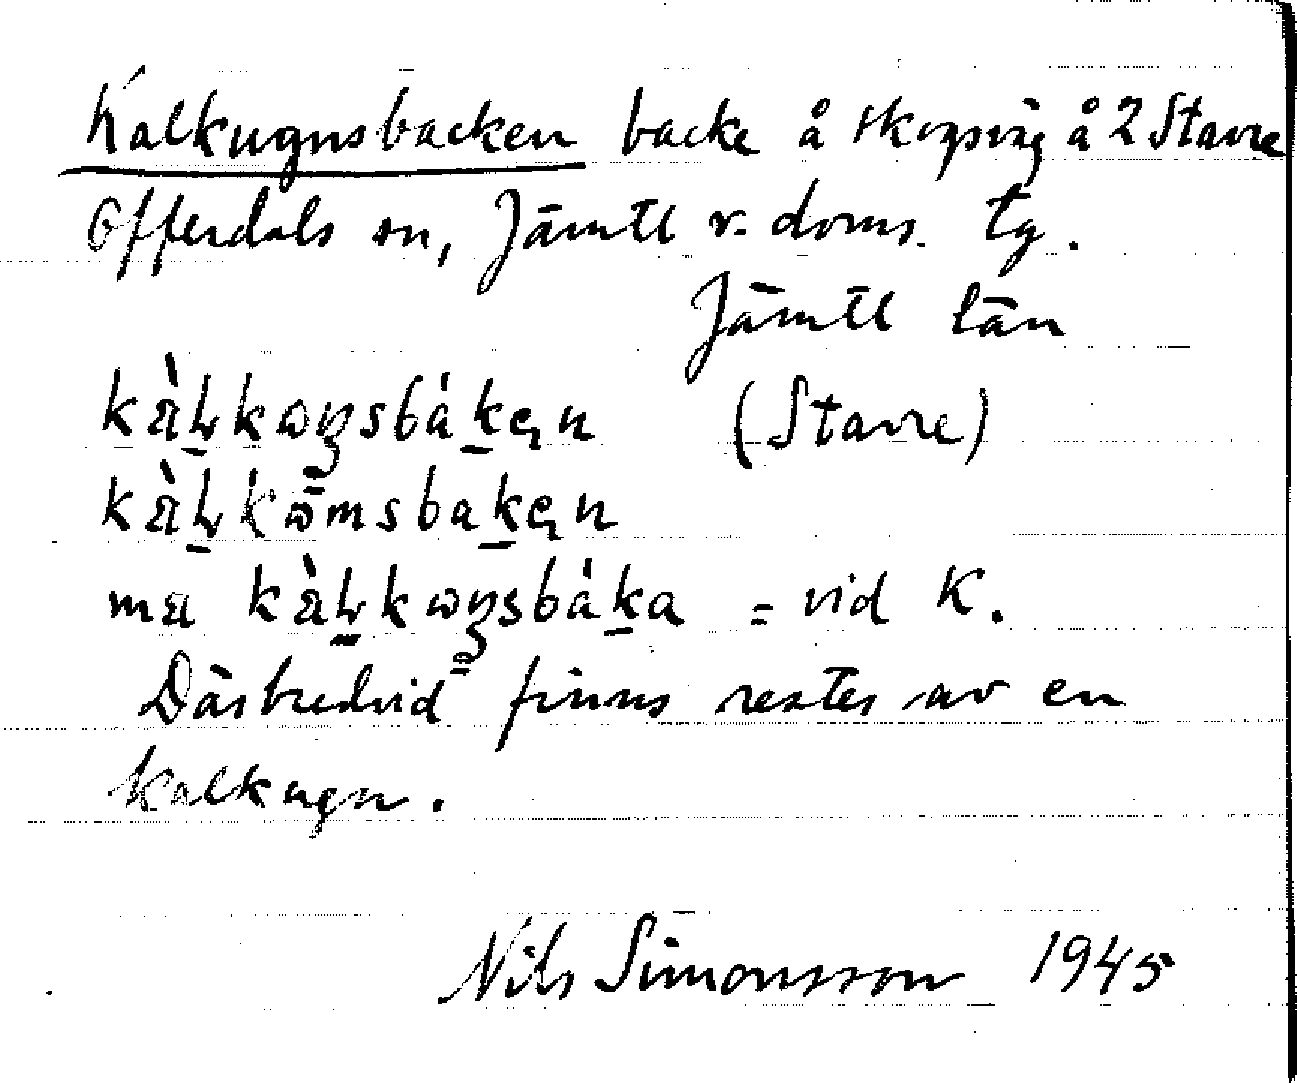 Kalkugnsbacken backe å skogsväg å 2 Stavre
Offerdals sn, Jämtl v. doms. tg.
Jämtl län
kàļkωŋsbákęn (Stavre)
kàļkω̄msbakęn
ma kàļkωŋsbáka = vid K.
Därbredvid finns rester av en
kalkugn.
Nils Simonsson 1945